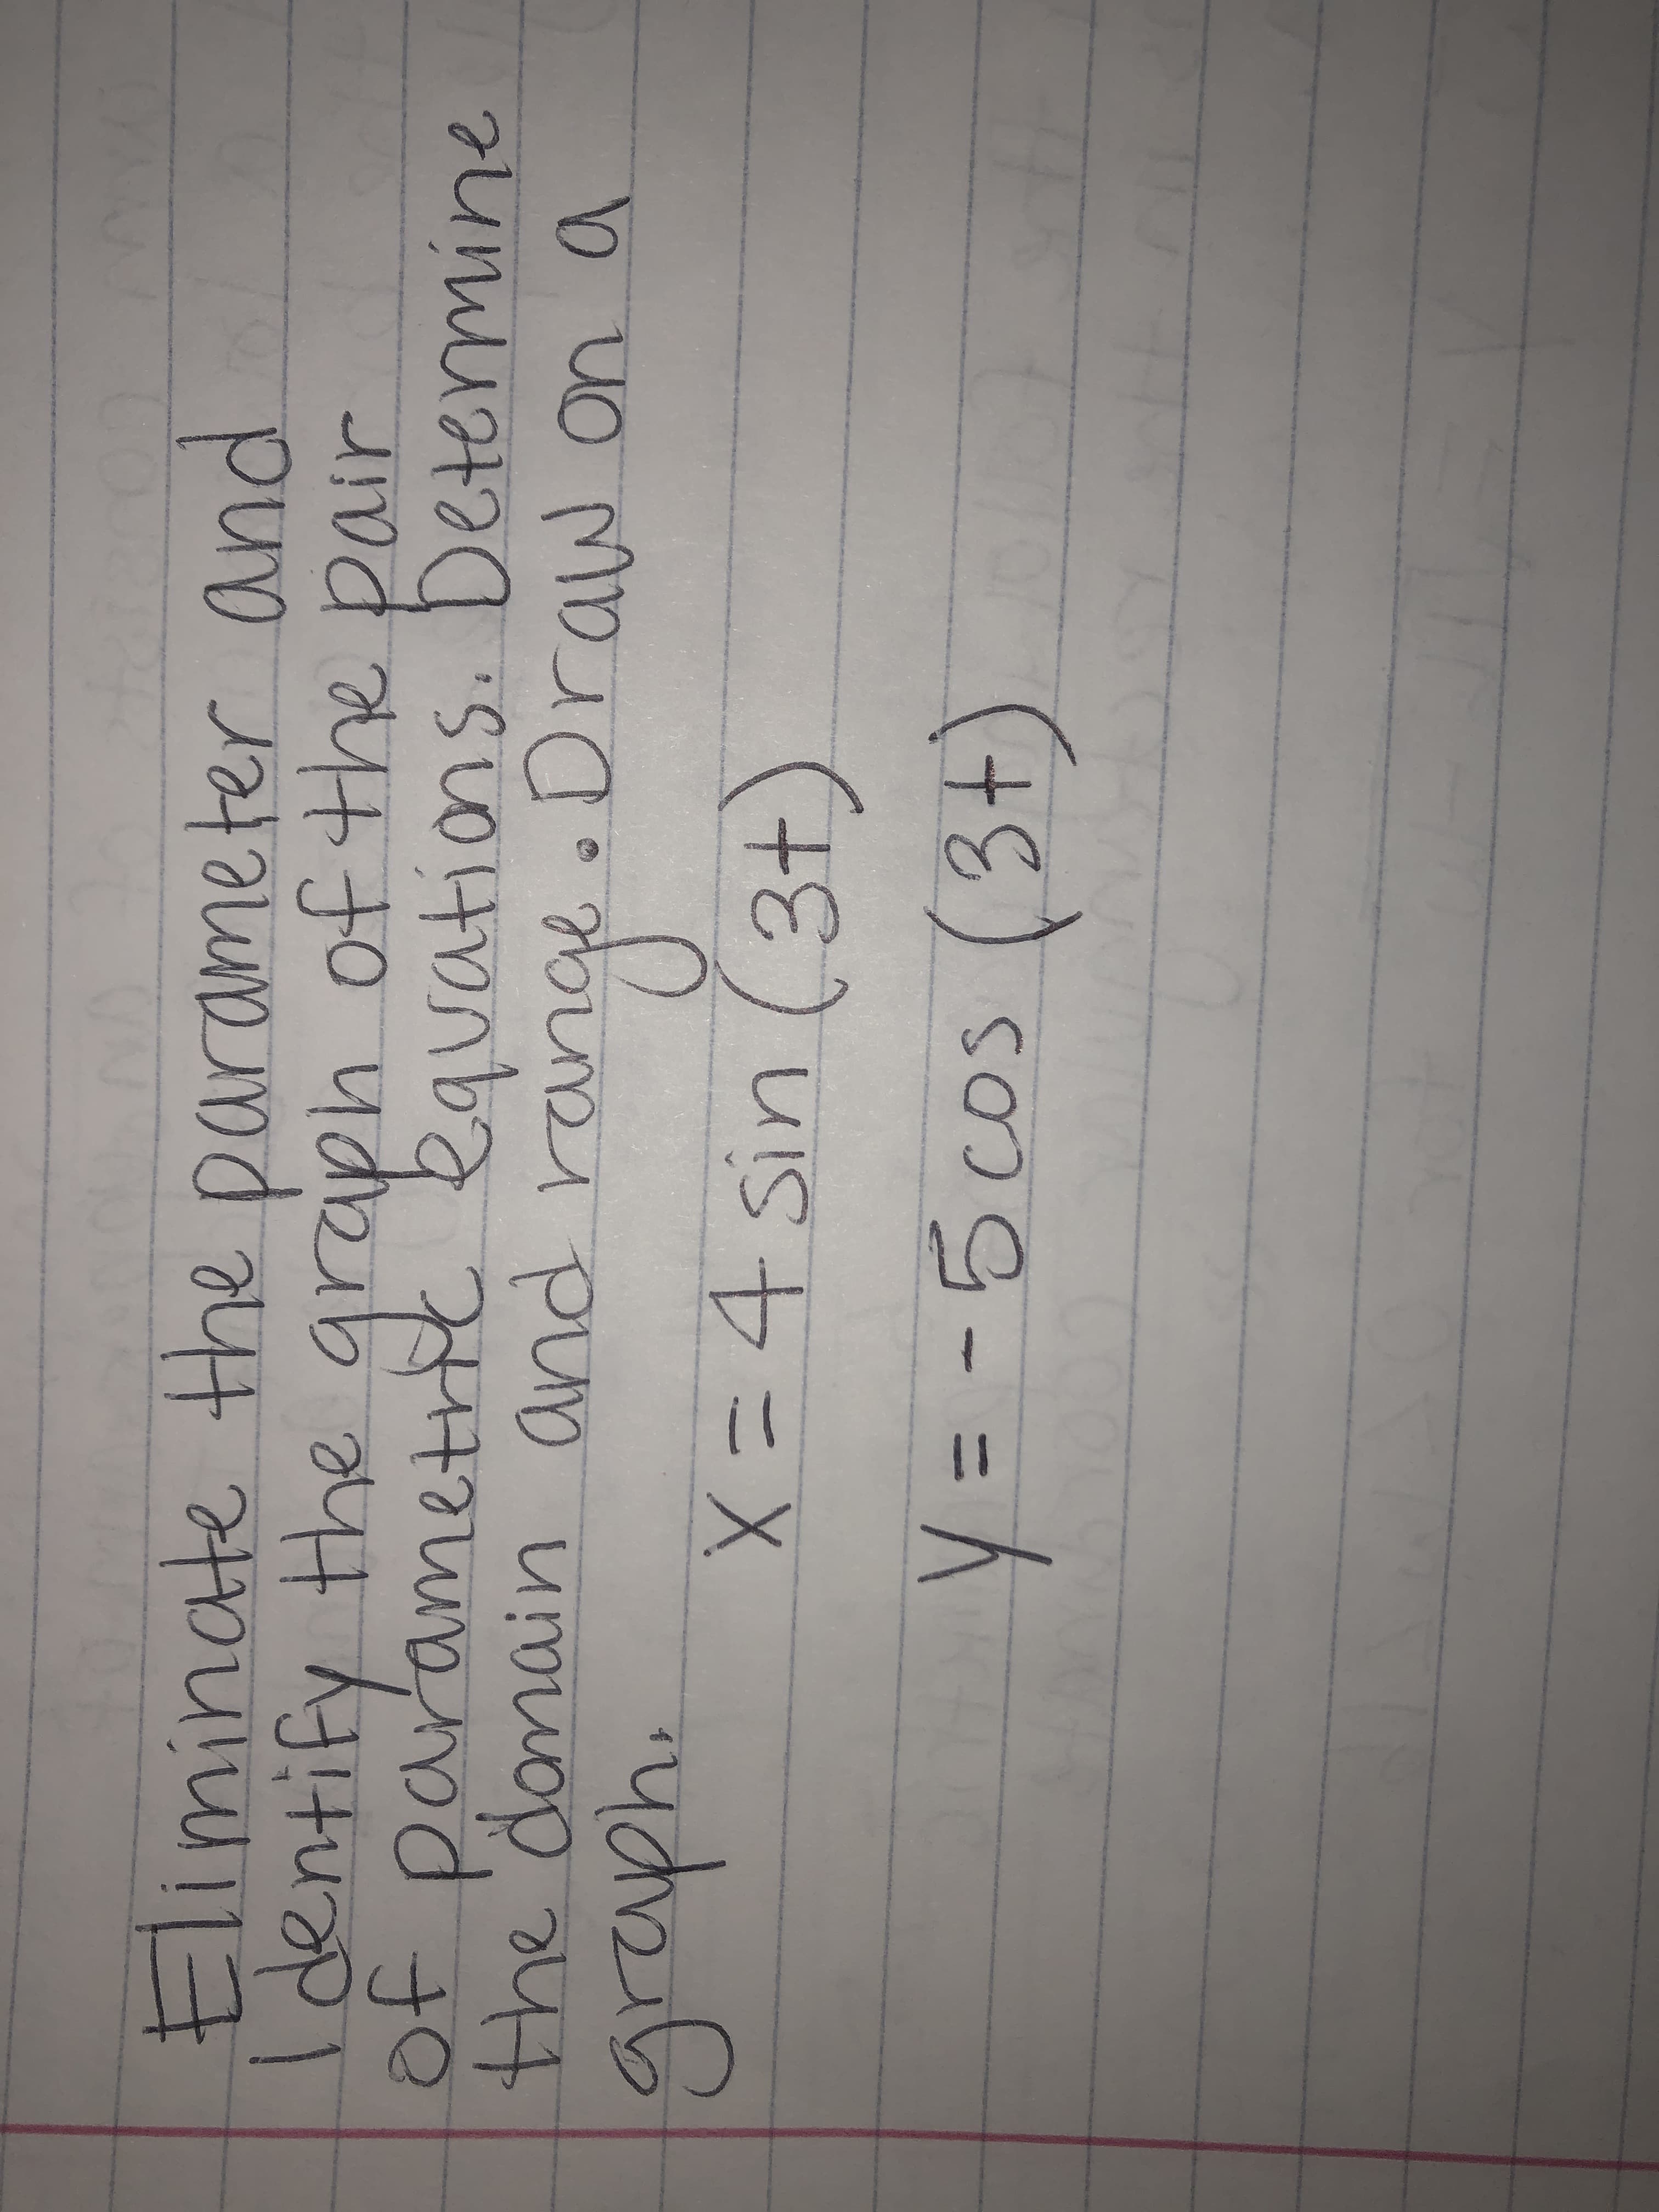 Eliminate the parameter and
identify the graph of the pair
of parametric equations. Determine
the domain and range. Draw on a
graph.
x = 4 sin (3t)
y = -5 cos (3t)